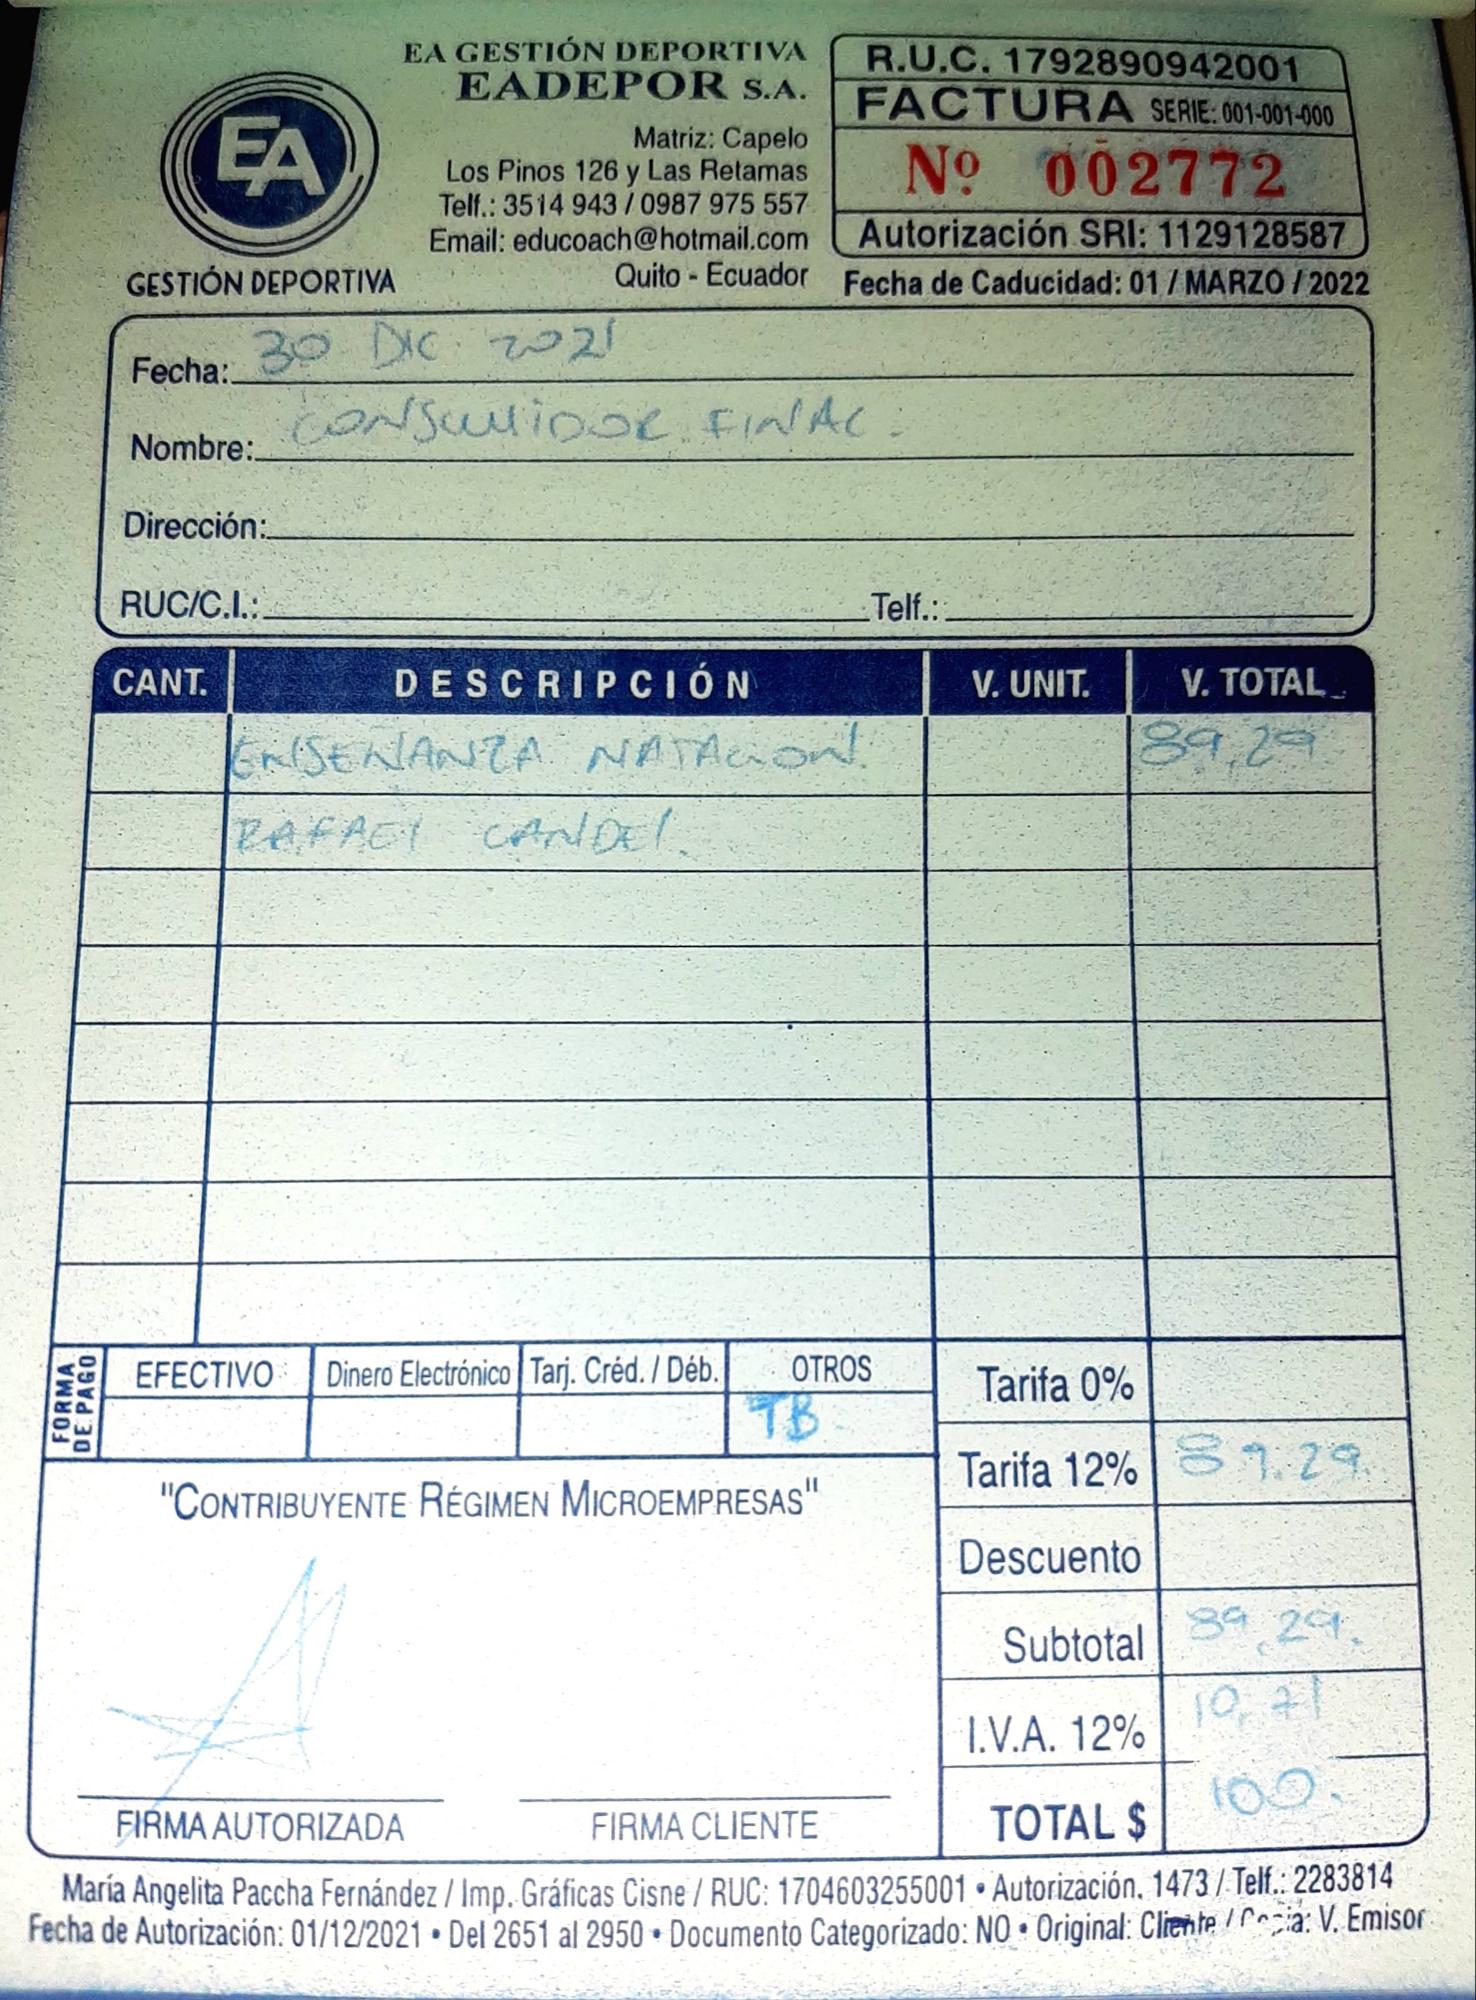 EA GESTIÓN DEPORTIVA
EADEPOR S.A.
Matriz: Capelo
Los Pinos 126 y Las Retamas
Telf.: 3514 943 / 0987 975 557
Email: educoach@hotmail.com
Quito - Ecuador
EA
GESTIÓN DEPORTIVA
R.U.C. 1792890942001
FACTURA SERIE: 001-001-000
Nº 002772
Autorización SRI: 1129128587
Fecha de Caducidad: 01 / MARZO / 2022
Fecha: 30 DIC 2021
Nombre: CONSUMIDOR FINAL.
Dirección:
RUC/C.I.: Telf.:
CANT. DESCRIPCIÓN V. UNIT. V. TOTAL
ENSEÑANZA NATACION. 89,29
RAFAEL CANDEL.
FORMA DE PAGO
EFECTIVO Dinero Electrónico Tarj. Créd. / Déb. OTROS
TB.
Tarifa 0%
Tarifa 12% 89.29.
Descuento
Subtotal 89,29.
I.V.A. 12% 10,71
TOTAL $ 100.
"CONTRIBUYENTE RÉGIMEN MICROEMPRESAS"
FIRMA AUTORIZADA FIRMA CLIENTE
María Angelita Paccha Fernández / Imp. Gráficas Cisne / RUC: 1704603255001 • Autorización. 1473 / Telf.: 2283814
Fecha de Autorización: 01/12/2021 • Del 2651 al 2950 • Documento Categorizado: NO • Original: Cliente / Copia: V. Emisor